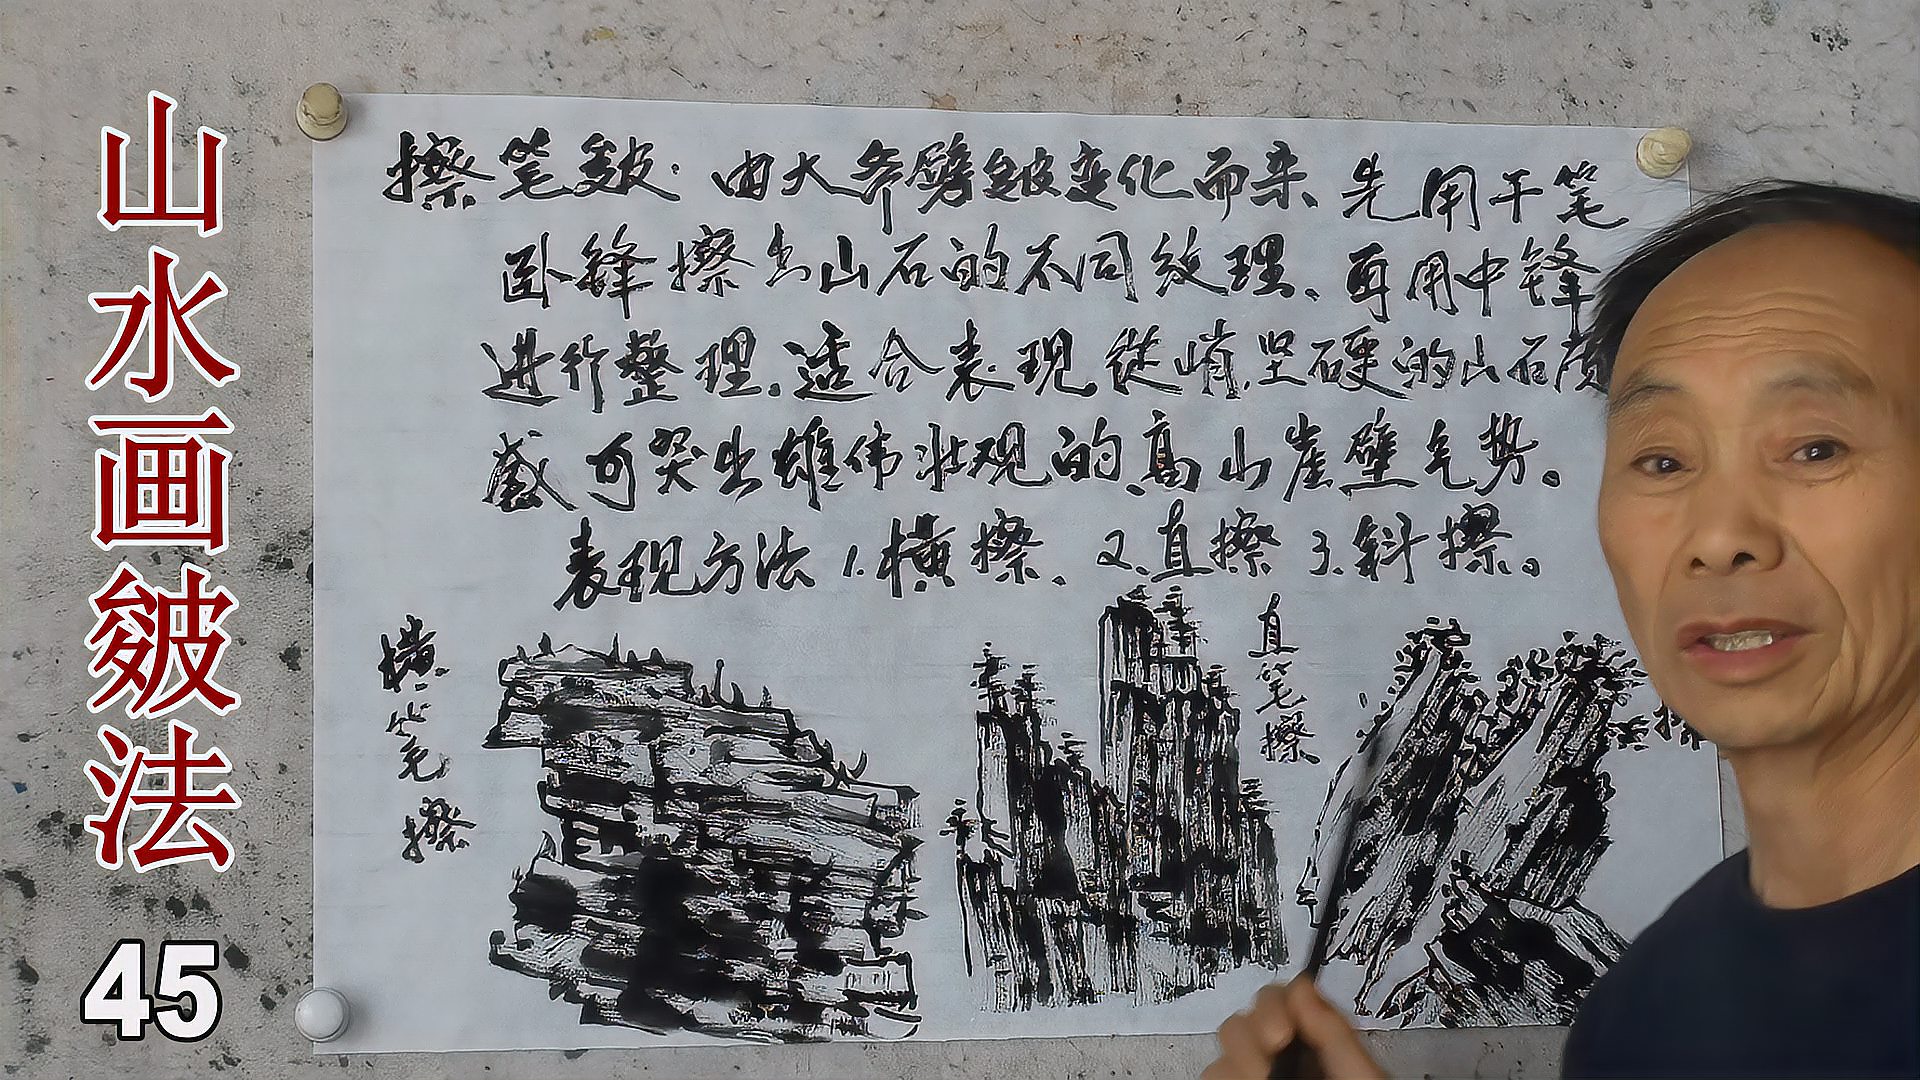 山水画皴法
45
擦笔皴:由大斧劈皴变化而来、先用干笔
卧锋擦出山石的不同纹理、再用中锋
进行整理.适合表现陡峭.坚硬的山石质
感可突出雄伟壮观的.高山崖壁气势。
表现方法1.横擦、2.直擦3.斜擦。
横笔擦
直笔擦
擦